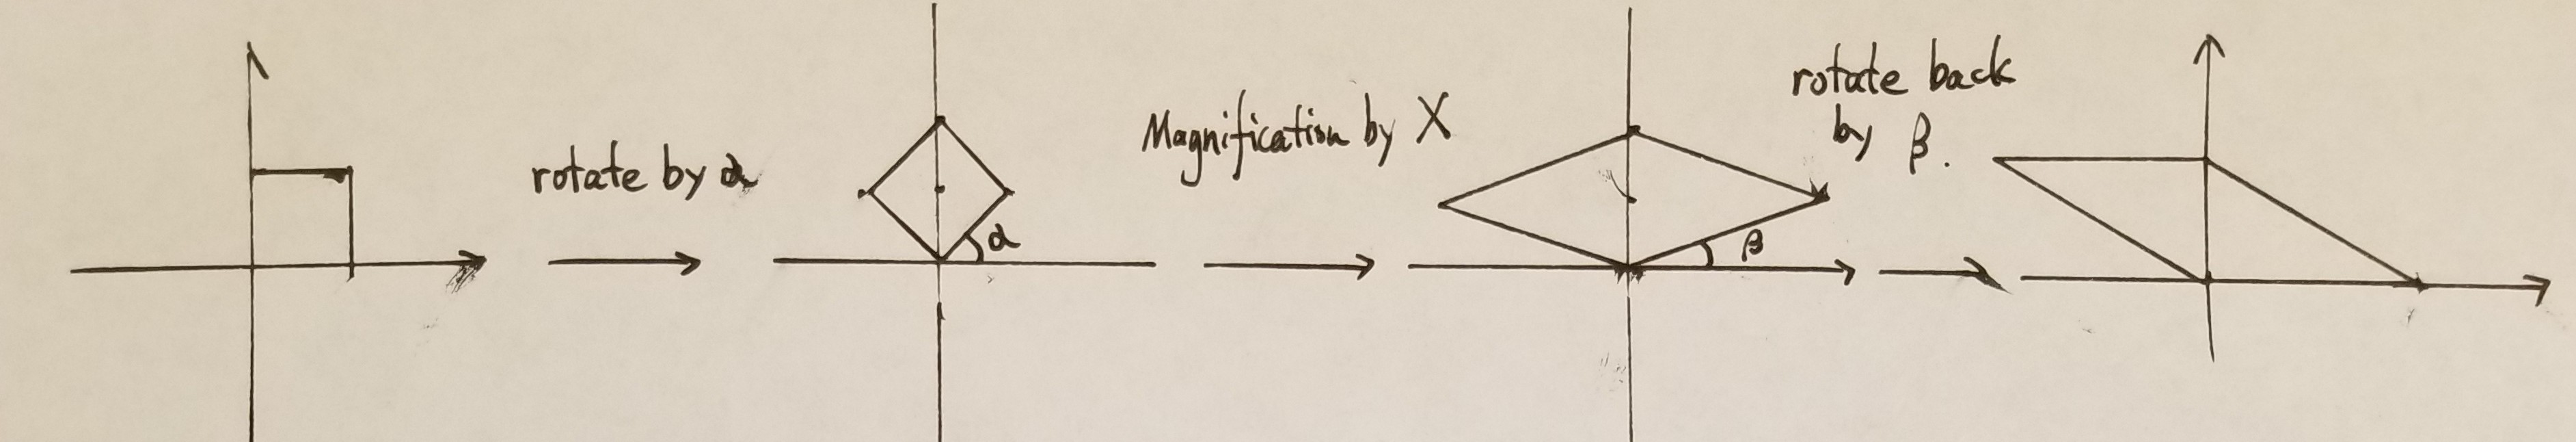 rotate by α
α
Magnification by X
β
rotate back
by β.